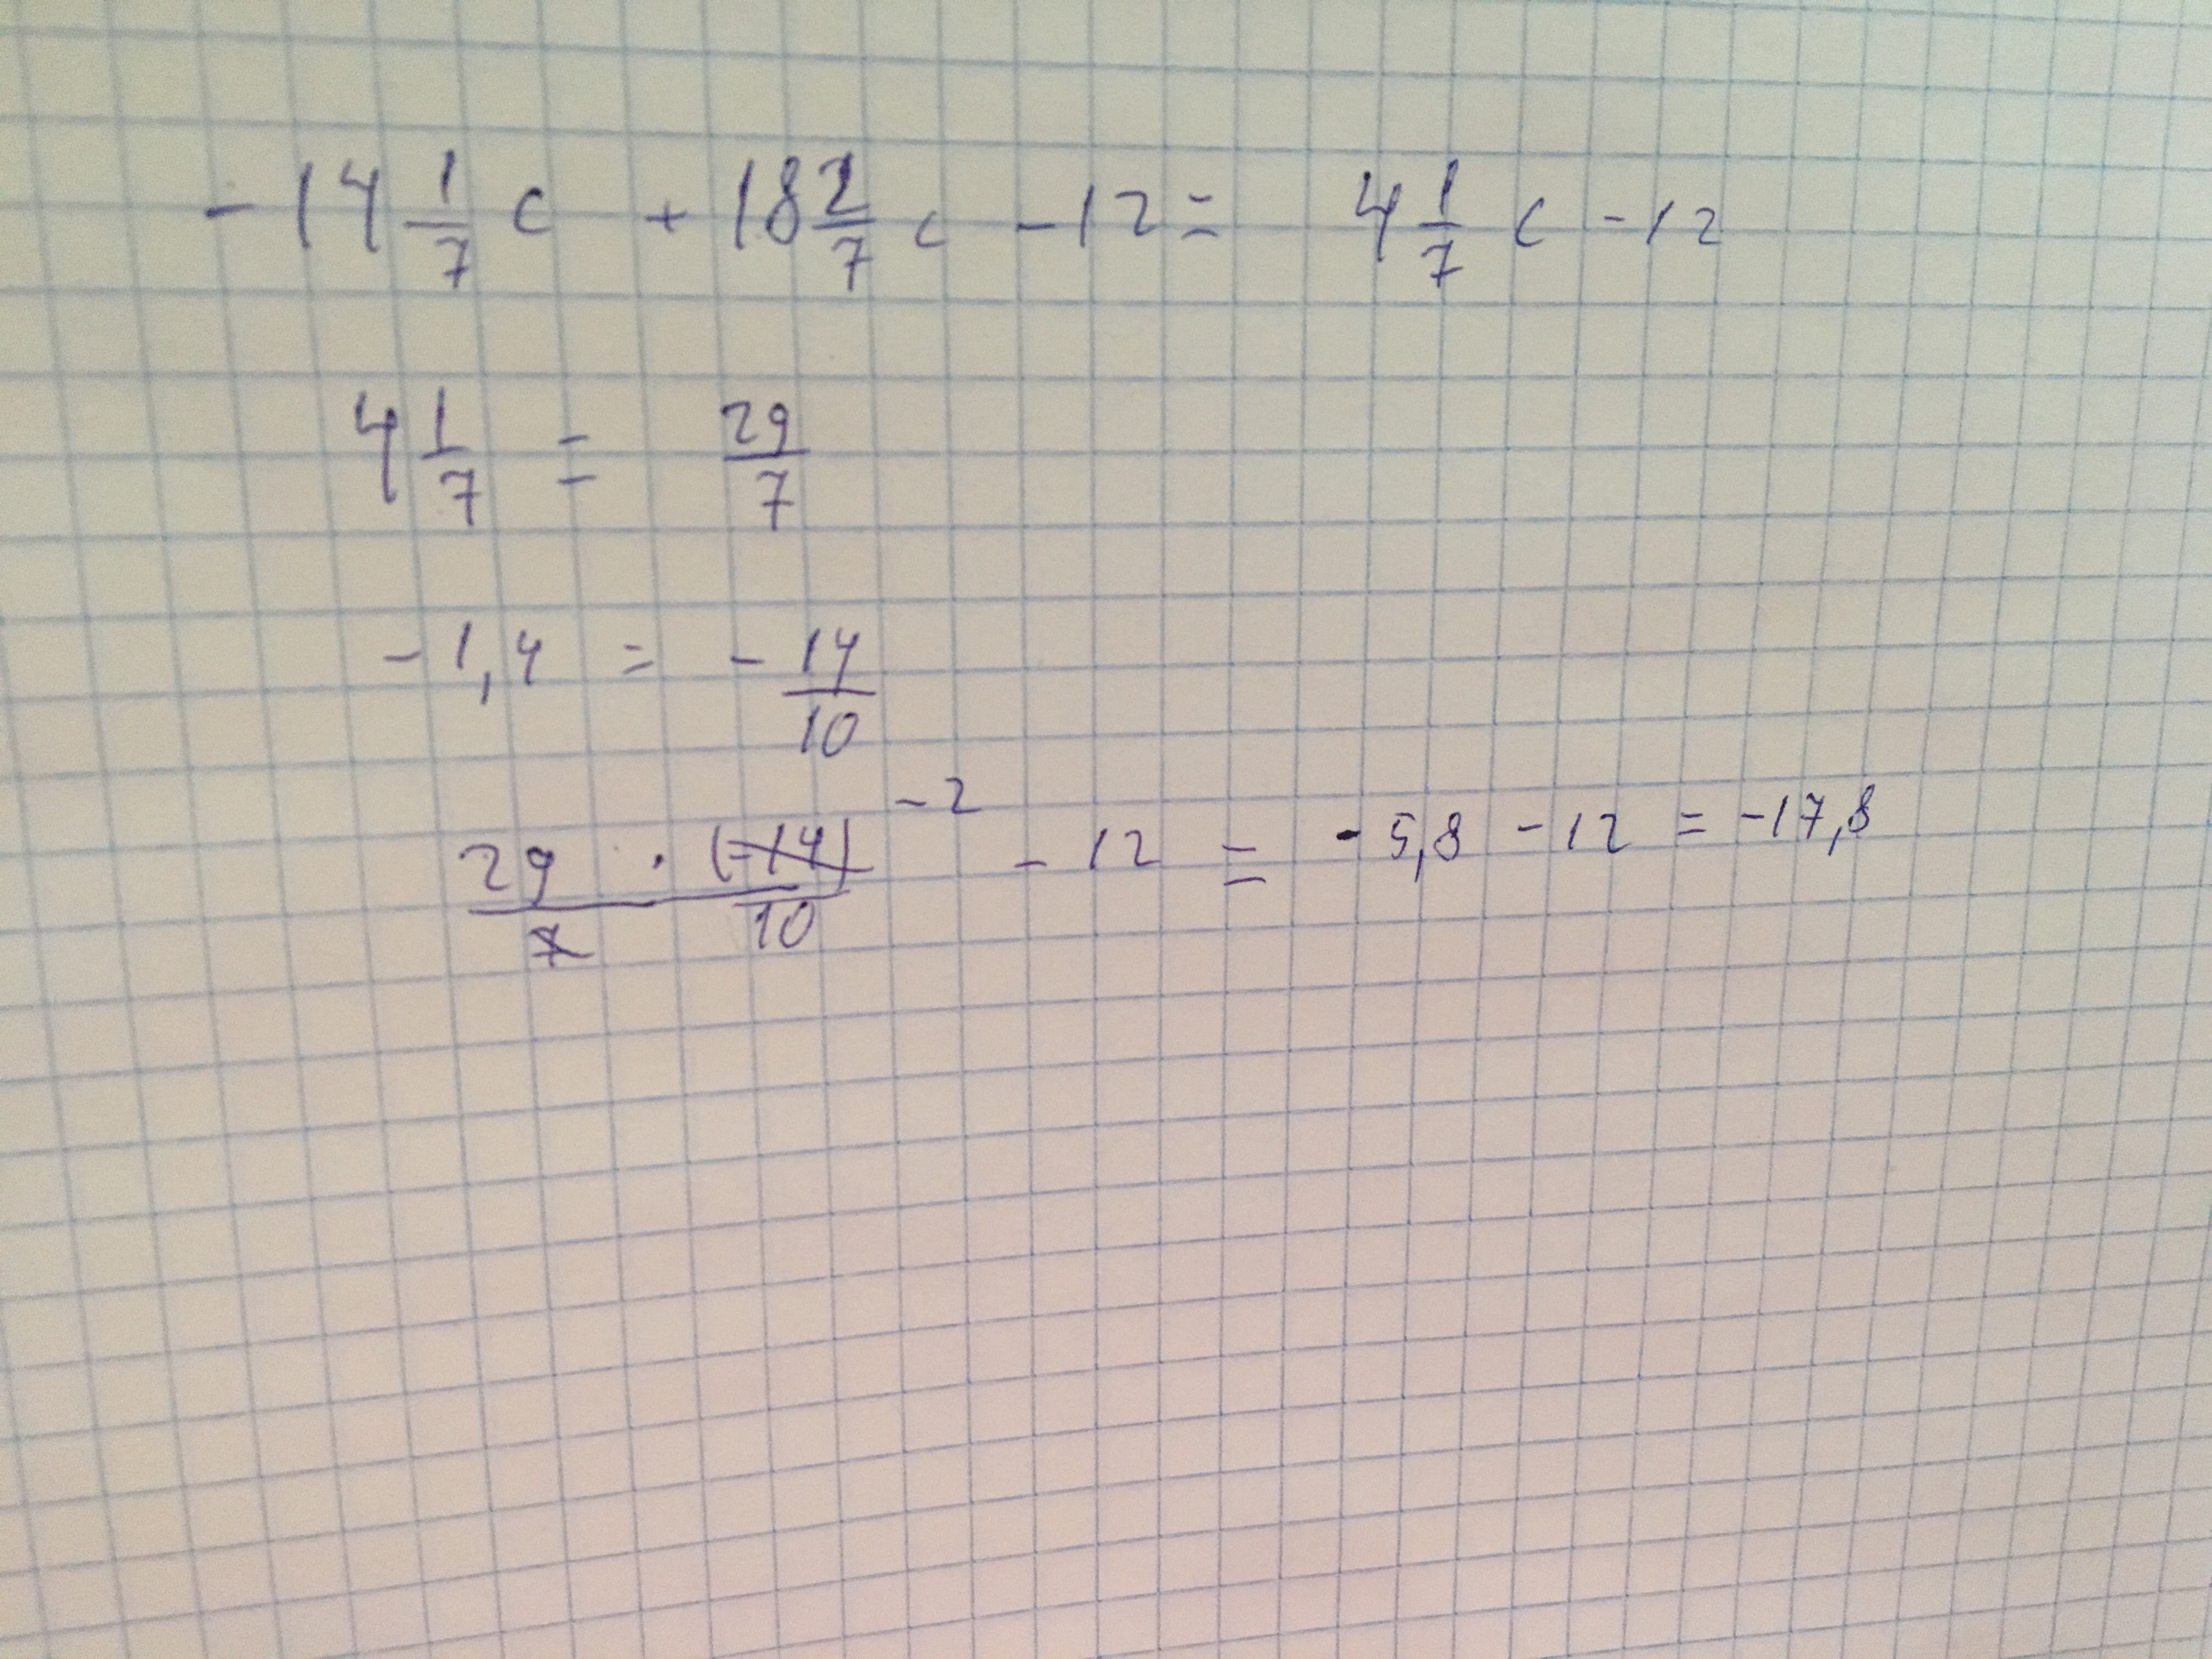 - 14 1/7 c + 18 2/7 c - 12 = 4 1/7 c - 12
4 1/7 = 29/7
- 1,4 = - 14/10
29 · (-14) / 7 10 -2 - 12 = - 5,8 - 12 = -17,8